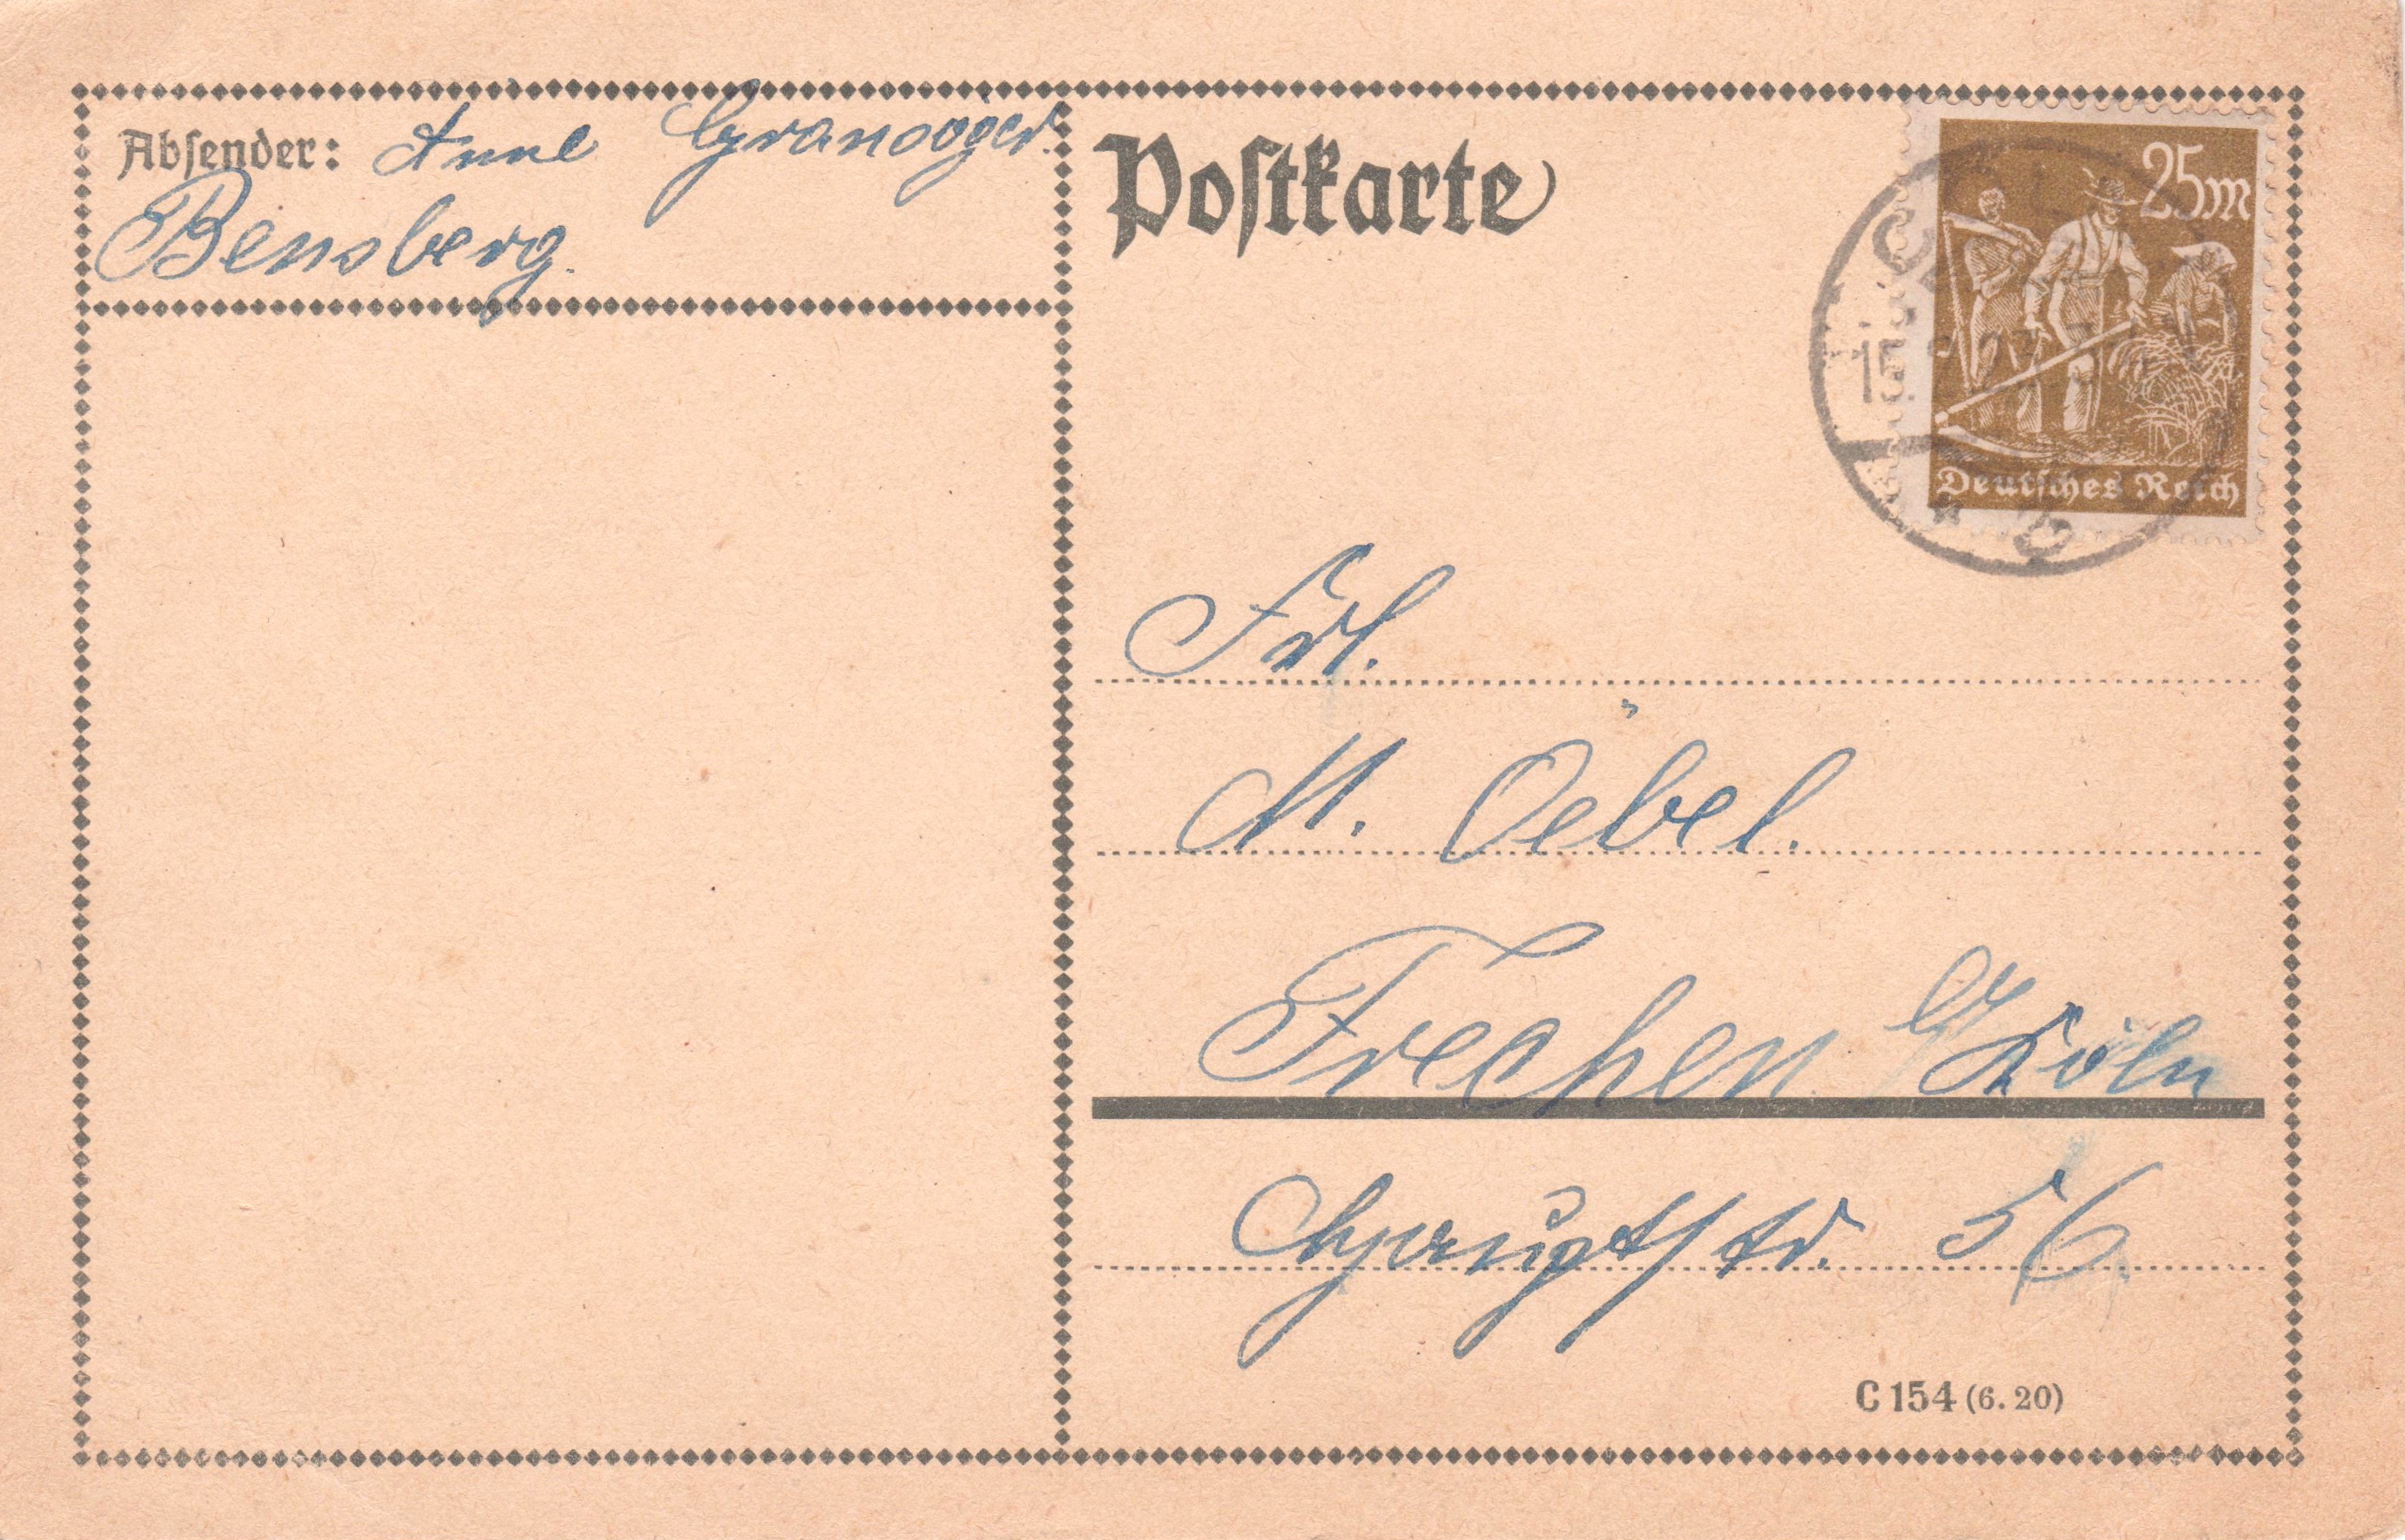 Absender: Anne
Bensberg.
Postkarte
25M
Deutsches Reich
15
b
Frl.
M. Oebel.
Frechen b/Köln
Hauptstr. 56.
C 154 (6. 20)